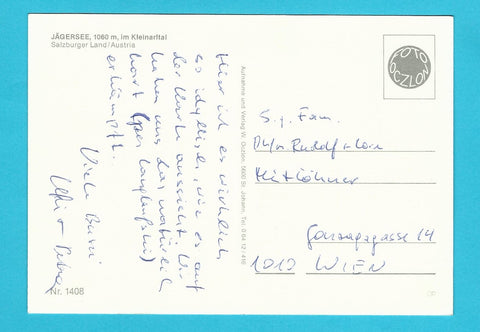 JÄGERSEE, 1060 m, im Kleinarltal
Salzburger Land/Austria
Hier ist es wirklich
so idyllisch, wie es auf
der Karte aussieht. Wir
haben uns das natürlich
hart (per Langlaufski)
erkämpft.
Viele Bussi
Nr. 1408
Aufnahme und Verlag W. Oczlon, 5600 St. Johann, Tel. 0 64 12 / 416
FOTO
OCZLON
S. g. Fam.
Rudolf
Gonzagagasse 14
1010 WIEN